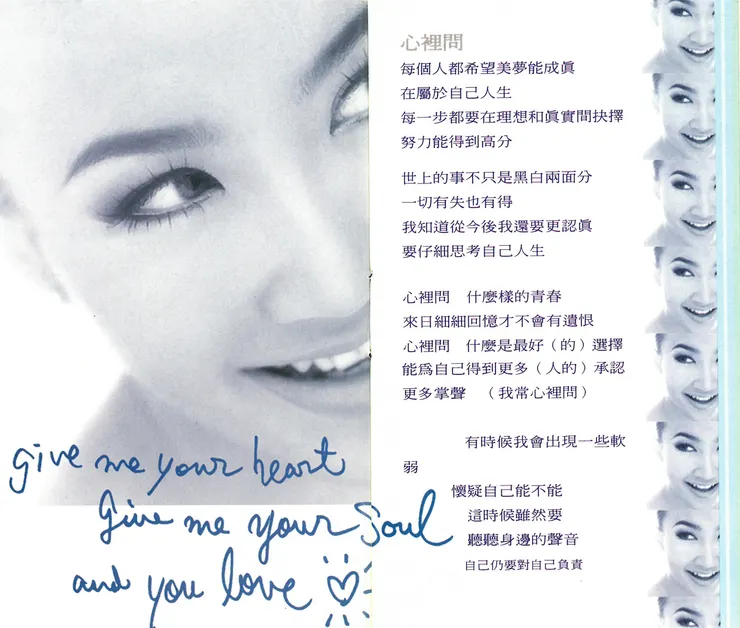 心裡問
每個人都希望美夢能成眞
在屬於自己人生
每一步都要在理想和眞實間抉擇
努力能得到高分
世上的事不只是黑白兩面分
一切有失也有得
我知道從今後我還要更認眞
要仔細思考自己人生
心裡問　什麼樣的青春
來日細細回憶才不會有遺恨
心裡問　什麼是最好（的）選擇
能爲自己得到更多（人的）承認
更多掌聲　（我常心裡問）
有時候我會出現一些軟
弱
懷疑自己能不能
這時候雖然要
聽聽身邊的聲音
自己仍要對自己負責
give me your heart
Give me your Soul
and you love